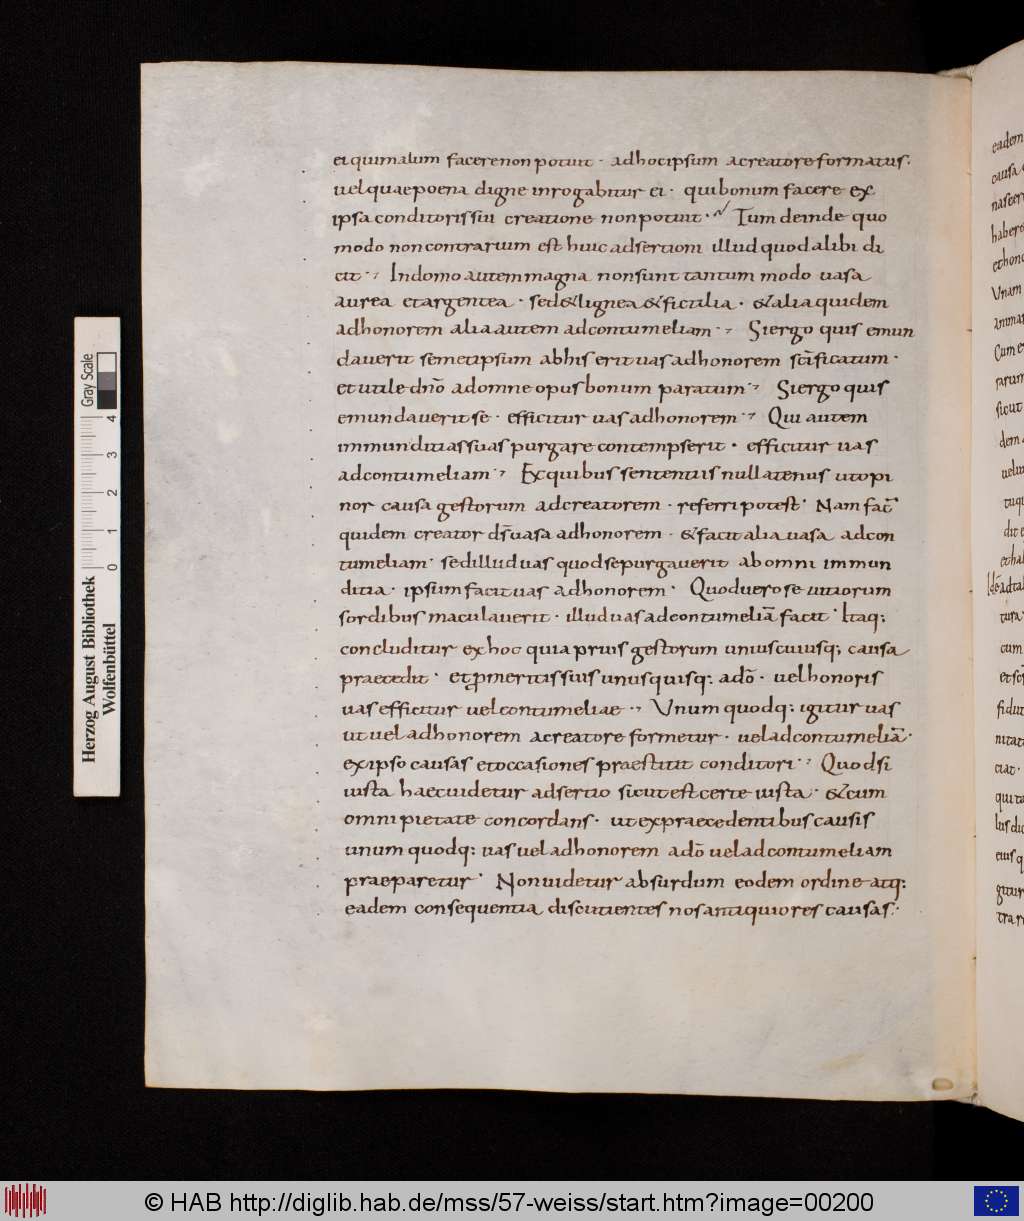 ei qui malum facere non potuit · ad hoc ipsum a creatore formatus.
uel quae poena digne inrogabitur ei · qui bonum facere ex
ipsa conditoris sui creatione non potuit · Tum deinde quo
modo non contrarium est huic adsertioni illud quod alibi di
cit · Indomo autem magna non sunt tantum modo uasa
aurea et argentea · sed & lignea & fictilia · & alia quidem
ad honorem alia autem ad contumeliam · Si ergo quis emun
dauerit semetipsum ab his erit uas ad honorem scificatum ·
et utile dno ad omne opus bonum paratum · Si ergo quis
emundauerit se · efficitur uas ad honorem · Qui autem
immunditias suas purgare contempserit · efficitur uas
ad contumeliam · Ex quibus sententiis nullatenus ut opi
nor causa gestorum ad creatorem · referri potest · Nam fac̄
quidem creator ds̄ uasa ad honorem · & facit alia uasa ad con
tumeliam · sed illud uas quod se purgauerit ab omni immun
ditia · ipsum facit uas ad honorem · Quod uero se uitiorum
sordibus maculauerit · illud uas ad contumeliā facit · Itaq;
concluditur ex hoc quia prius gestorum uniuscuiusq; causa
praecedit · et ꝓ meritis suis unusquisq; a dō · uel honoris
uas efficitur uel contumeliae · Vnum quodq; igitur uas
ut uel ad honorem a creatore formetur · uel ad contumeliā ·
ex ipso causas et occasiones praestitit conditori · Quod si
iusta haec uidetur adsertio sicut est certe iusta · & cum
omni pietate concordans · ut ex praecedentibus causis
unum quodq; uas uel ad honorem a dō uel ad contumeliam
praeparetur · Non uidetur absurdum eodem ordine atq;
eadem consequentia discutientes nos antiquiores causas ·
Gray Scale
0 1 2 3 4
Herzog August Bibliothek
Wolfenbüttel
© HAB http://diglib.hab.de/mss/57-weiss/start.htm?image=00200